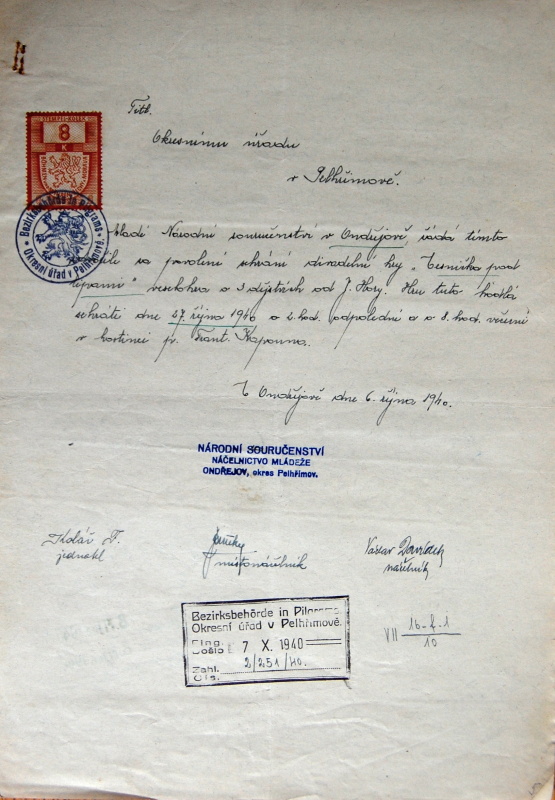 STEMPEL-KOLEK
8
K
Bezirksbehörde in Pilgrams
Okresní úřad v Pelhřimově.
Titl.
Okresnímu úřadu
v Pelhřimově.
Mladí Národní souručenství v Ondřejově, žádá tímto
za povolení sehrání divadelní hry „Vesnička pod
lipami" veselohra o 3 dějstvích od J. Hory. Hru tuto hodlá
sehráti dne 27. října 1940 o 2. hod. odpolední a o 8. hod. večerní
v hostinci p. Frant. Kapouna.
V Ondřejově dne 6. října 1940.
NÁRODNÍ SOURUČENSTVÍ
NÁČELNICTVO MLÁDEŽE
ONDŘEJOV, okres Pelhřimov.
Kolář F.
jednatel
místonáčelník
Václav
náčelník
Bezirksbehörde in Pilgrams
Okresní úřad v Pelhřimově.
Eing.
Došlo: 7 X. 1940
Zahl.
Čís. 2/251/40.
VII 16-f-1
10